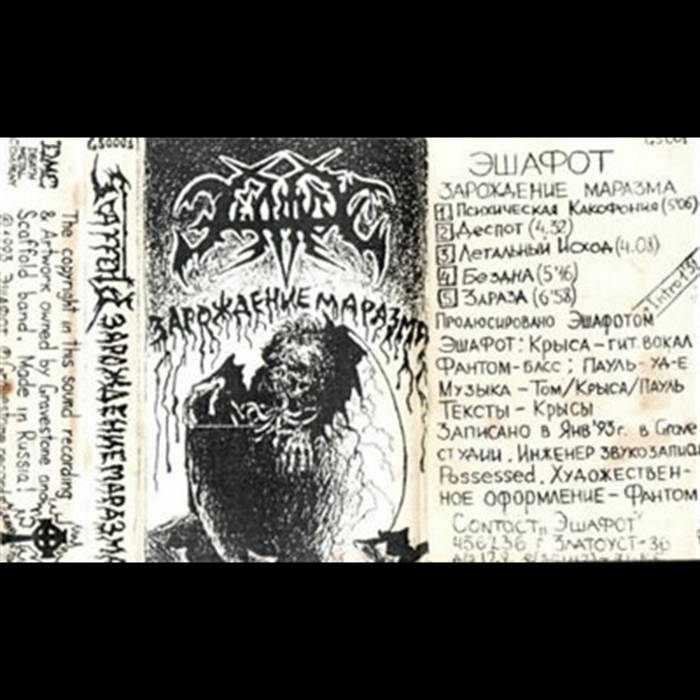 GS0001
DMC
DEATH
METAL
COMPANY
The copyright in this sound recording
& Artwork owned by Gravestone and
Scaffold band. Made in Russia!
©1993 Эшафот
Scaffold ЗАРОЖДЕНИЕ МАРАЗМА
Эшафот
ЗАРОЖДЕНИЕ МАРАЗМА
ЭШАФОТ
ЗАРОЖДЕНИЕ МАРАЗМА
1 Психическая Какофония (5'06)
2 Деспот (4.52)
3 Летальный Исход (4.08)
4 Бездна (5'46)
5 Зараза (6'58)
Intro 1'31
Продюсировано Эшафотом
Эшафот: Крыса-гит. вокал
Фантом-басс; Пауль-уд-е
Музыка-Том/Крыса/Пауль
Тексты-Крысы
Записано в Янв'93г. в Grave
студии. Инженер звукозаписи
Possessed. Художествен-
ное оформление-Фантом
Contact "Эшафот"
456236 г Златоуст-36